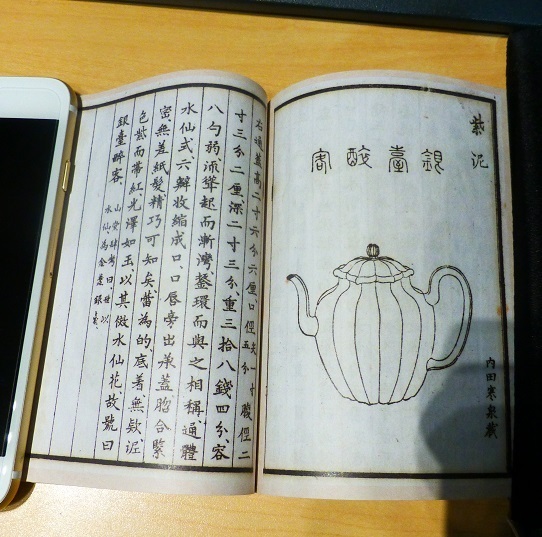 紫泥
銀臺醉客
内田寒泉藏
右通蓋高二寸六分六厘、口徑一寸五分腹徑二
寸三分二厘深二寸三分、重三拾八錢四分、容
八勺弱流聳起而漸灣、鋬環而與之相稱、通體
水仙式六瓣收縮成口、口唇旁出承蓋脗合緊
密、無差紙髮精巧可知矣、蕾為的底着無款、泥
色紫而帶紅光澤如玉以其倣水仙花故號曰
銀臺醉客
山堂肆考曰、世以
水仙為金盞銀臺、